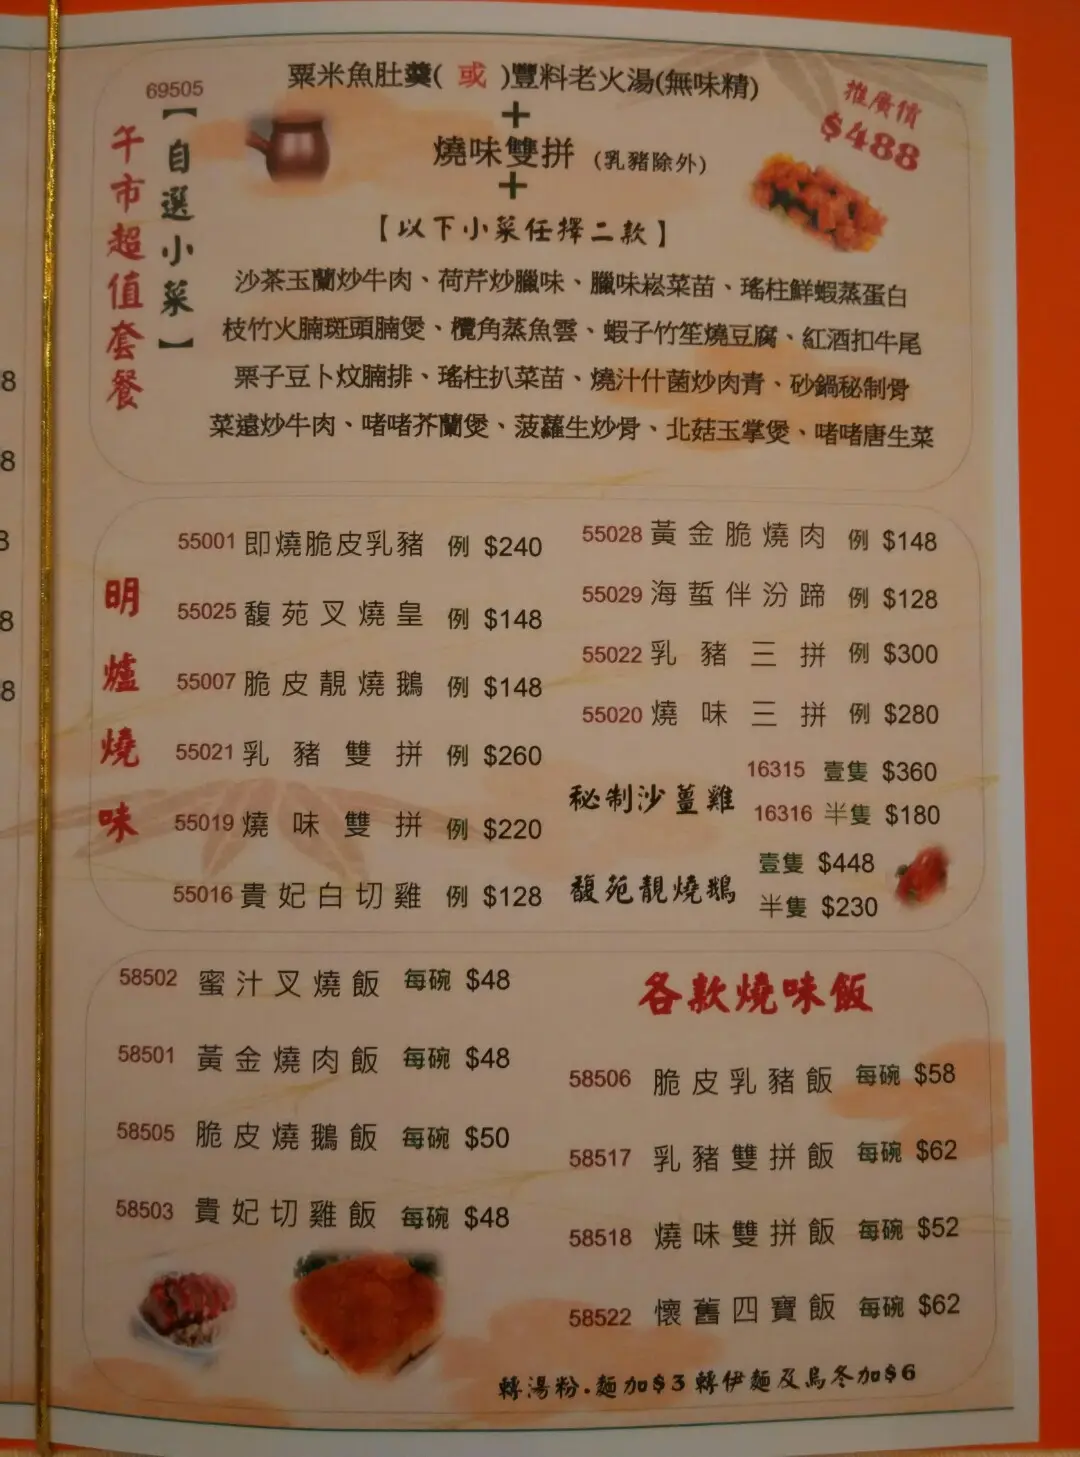 69505
午市超值套餐
【自選小菜】
粟米魚肚羹(或)豐料老火湯(無味精)
+
燒味雙拼 (乳豬除外)
+
推廣價
$488
【以下小菜任擇二款】
沙茶玉蘭炒牛肉、荷芹炒臘味、臘味崧菜苗、瑤柱鮮蝦蒸蛋白
枝竹火腩斑頭腩煲、欖角蒸魚雲、蝦子竹笙燒豆腐、紅酒扣牛尾
栗子豆卜炆腩排、瑤柱扒菜苗、燒汁什菌炒肉青、砂鍋秘制骨
菜遠炒牛肉、啫啫芥蘭煲、菠蘿生炒骨、北菇玉掌煲、啫啫唐生菜
明爐燒味
55001 即燒脆皮乳豬 例 $240
55025 馥苑叉燒皇 例 $148
55007 脆皮靚燒鵝 例 $148
55021 乳豬雙拼 例 $260
55019 燒味雙拼 例 $220
55016 貴妃白切雞 例 $128
55028 黃金脆燒肉 例 $148
55029 海蜇伴汾蹄 例 $128
55022 乳豬三拼 例 $300
55020 燒味三拼 例 $280
秘制沙薑雞
16315 壹隻 $360
16316 半隻 $180
馥苑靚燒鵝
壹隻 $448
半隻 $230
58502 蜜汁叉燒飯 每碗 $48
58501 黃金燒肉飯 每碗 $48
58505 脆皮燒鵝飯 每碗 $50
58503 貴妃切雞飯 每碗 $48
各款燒味飯
58506 脆皮乳豬飯 每碗 $58
58517 乳豬雙拼飯 每碗 $62
58518 燒味雙拼飯 每碗 $52
58522 懷舊四寶飯 每碗 $62
轉湯粉.麵加$3 轉伊麵及烏冬加$6
8
8
8
8
8